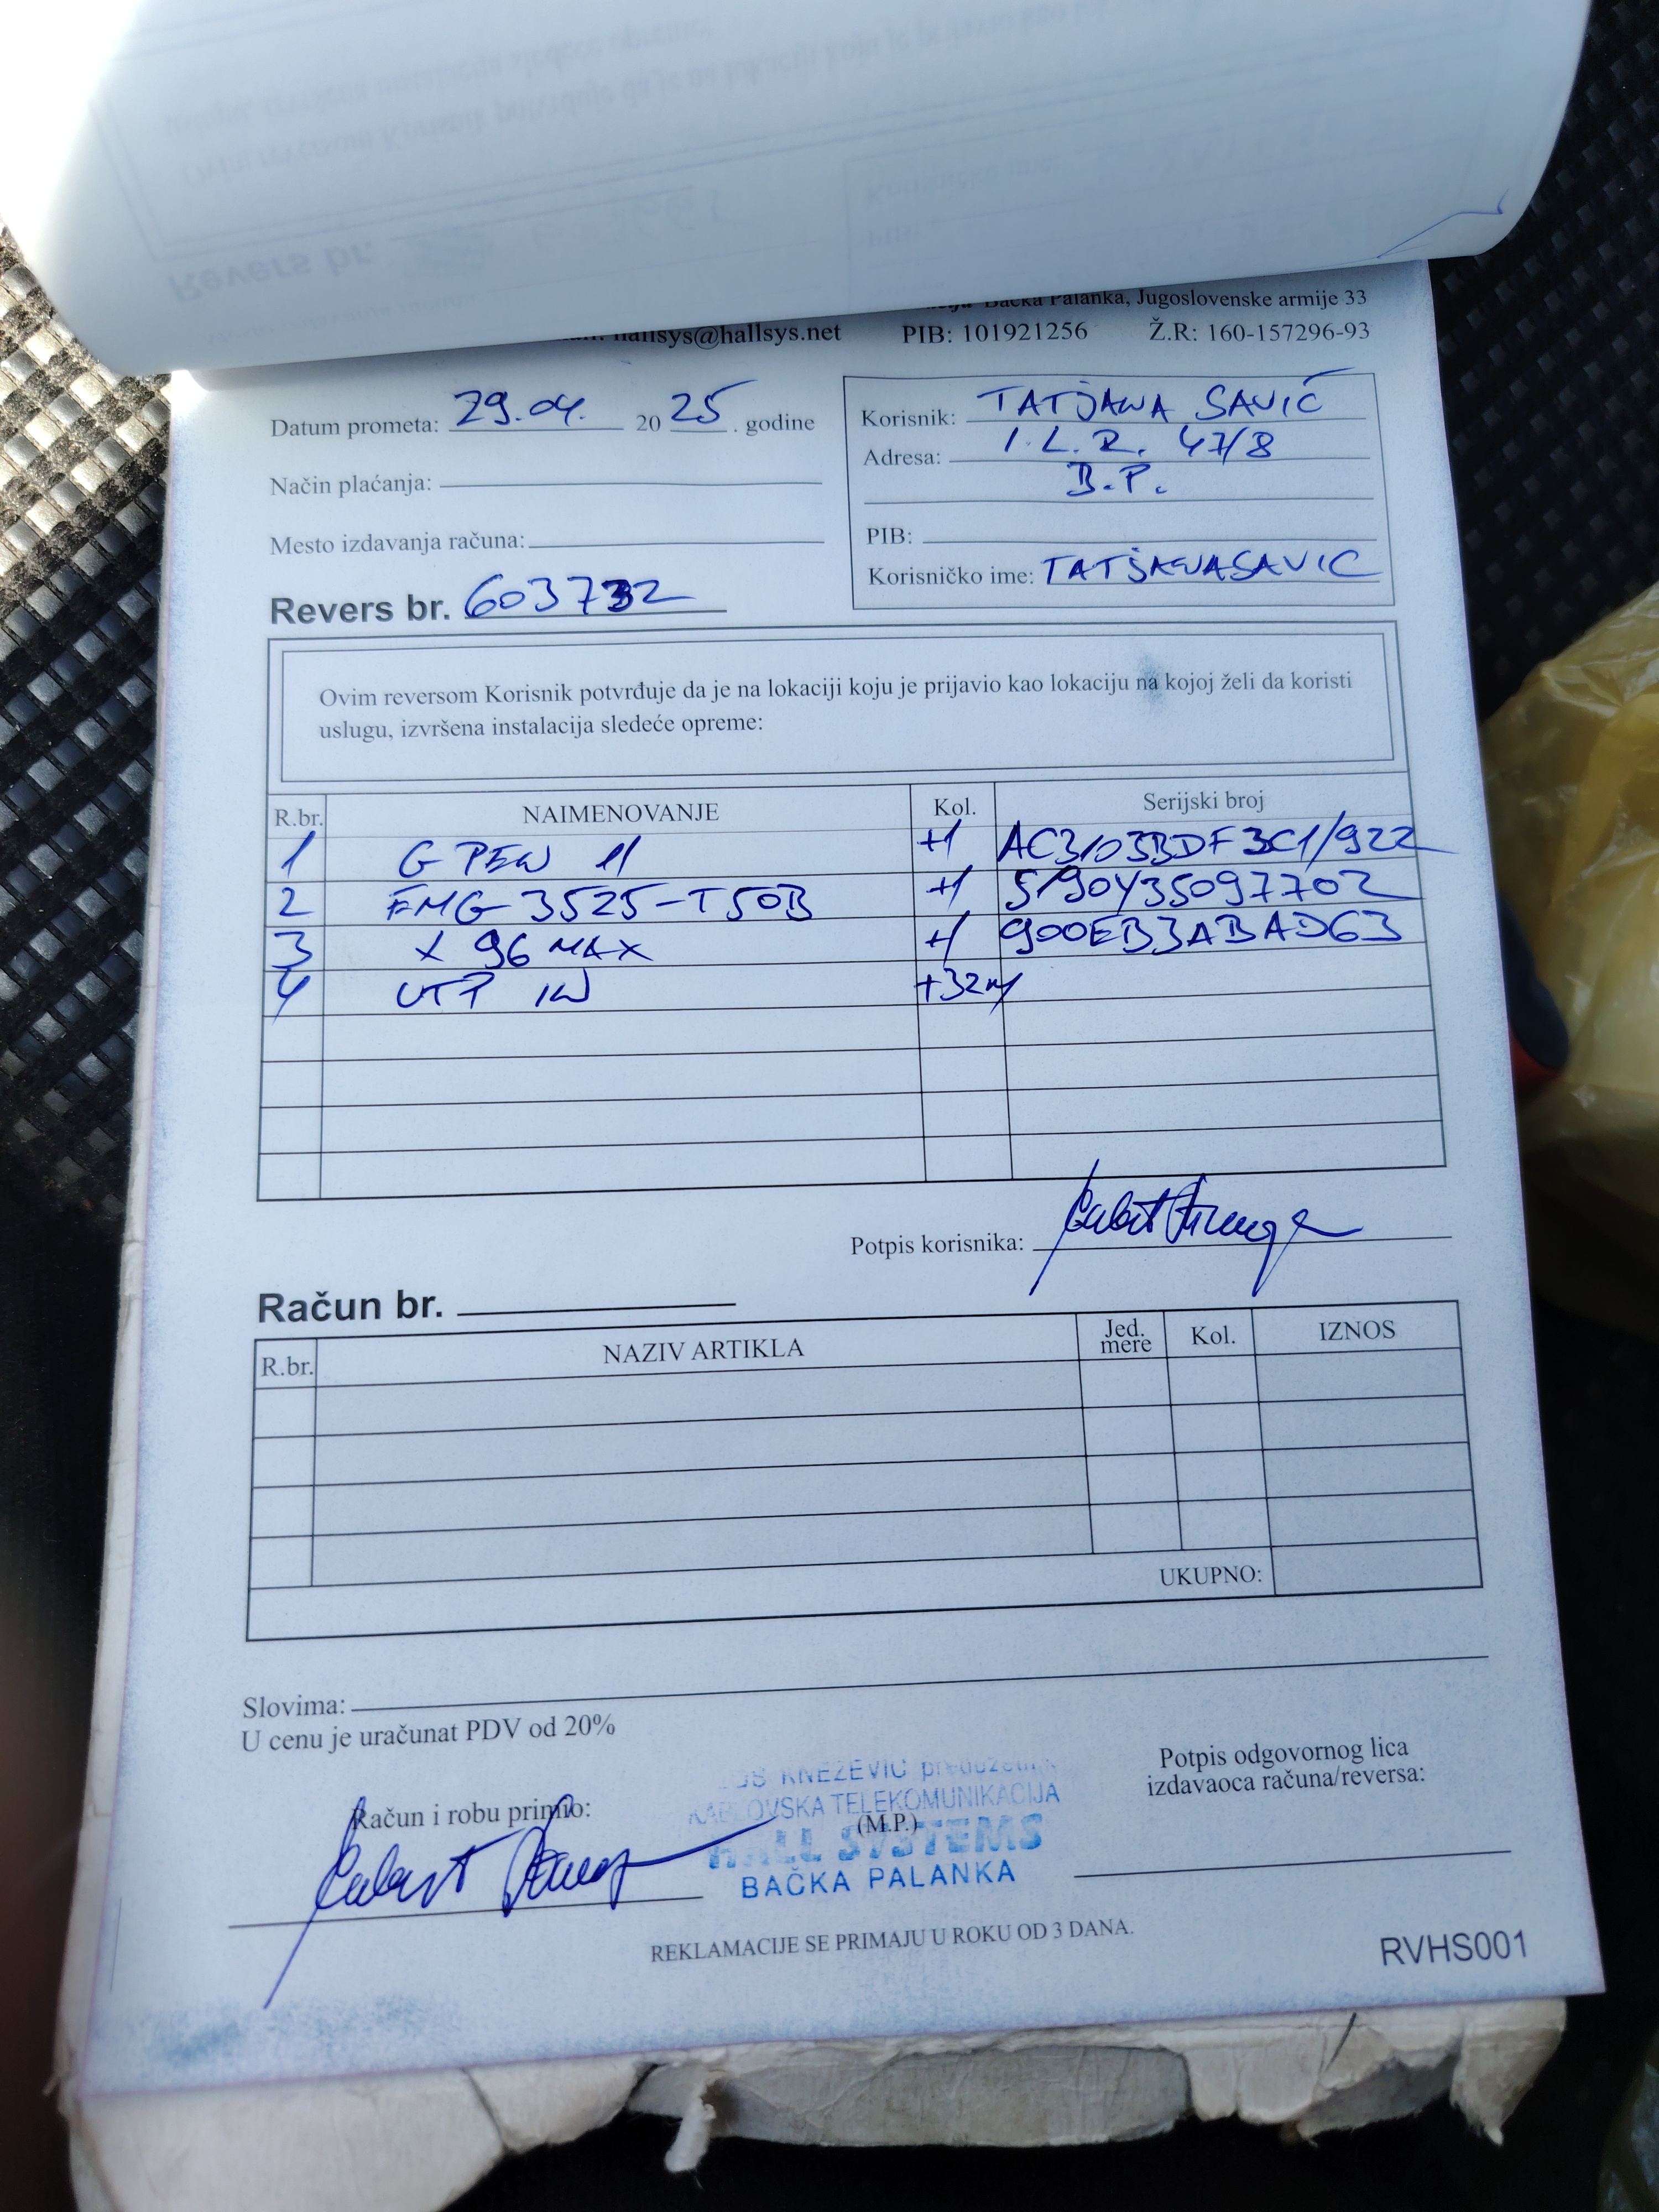 Bačka Palanka, Jugoslovenske armije 33
hallsys@hallsys.net PIB: 101921256 Ž.R: 160-157296-93
Datum prometa: 29.04. 2025. godine
Način plaćanja:
Mesto izdavanja računa:
Revers br. 603732
Korisnik: TATJANA SAVIĆ
Adresa: I.L.R. 47/8
B.P.
PIB:
Korisničko ime: TATJANASAVIC
Ovim reversom Korisnik potvrđuje da je na lokaciji koju je prijavio kao lokaciju na kojoj želi da koristi
uslugu, izvršena instalacija sledeće opreme:
R.br. NAIMENOVANJE Kol. Serijski broj
1 G PEW 11 +1 AC3103BDF3C1/922
2 FMG 3525-T50B +1 S190Y35097702
3 X 96 MAX +1 900EB3ABAD63
4 UTP IW +32m
Potpis korisnika:
Račun br.
R.br. NAZIV ARTIKLA Jed. mere Kol. IZNOS
UKUPNO:
Slovima:
U cenu je uračunat PDV od 20%
Račun i robu primio:
KNEŽEVIĆ preduzetnik
KABLOVSKA TELEKOMUNIKACIJA
(M.P.)
HALL SYSTEMS
BAČKA PALANKA
Potpis odgovornog lica
izdavaoca računa/reversa:
REKLAMACIJE SE PRIMAJU U ROKU OD 3 DANA.
RVHS001